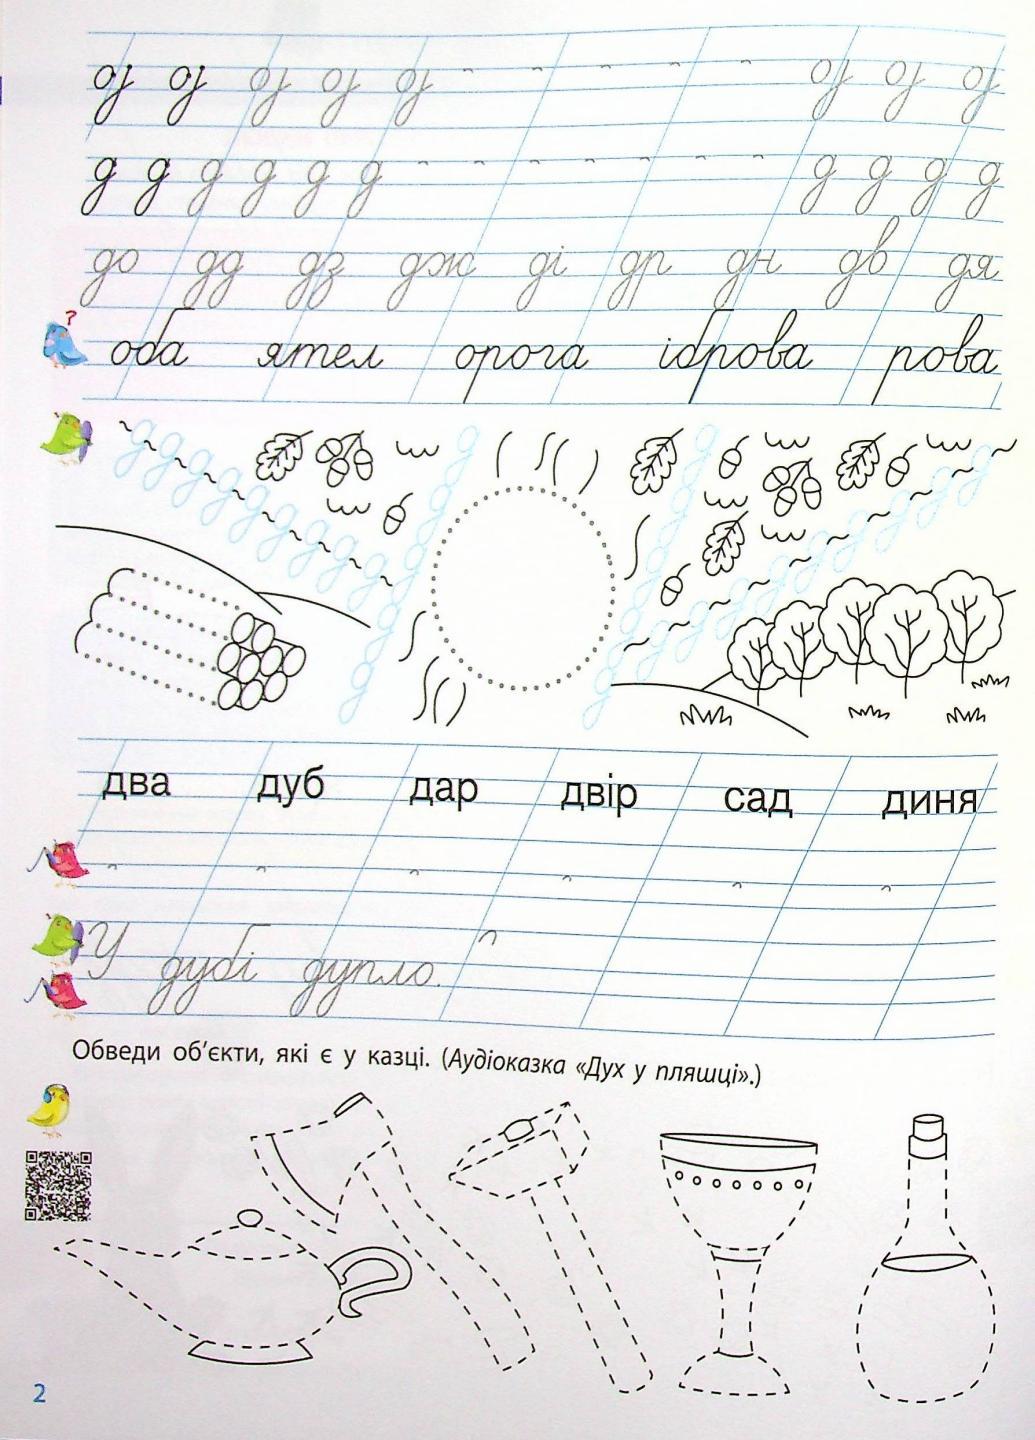 д д д д д д д д
до дд дз дж ді др дн дв дя
?
оба ятел орога іброва рова
два дуб дар двір сад диня
У дубі дупло.
Обведи об’єкти, які є у казці. (Аудіоказка «Дух у пляшці».)
2